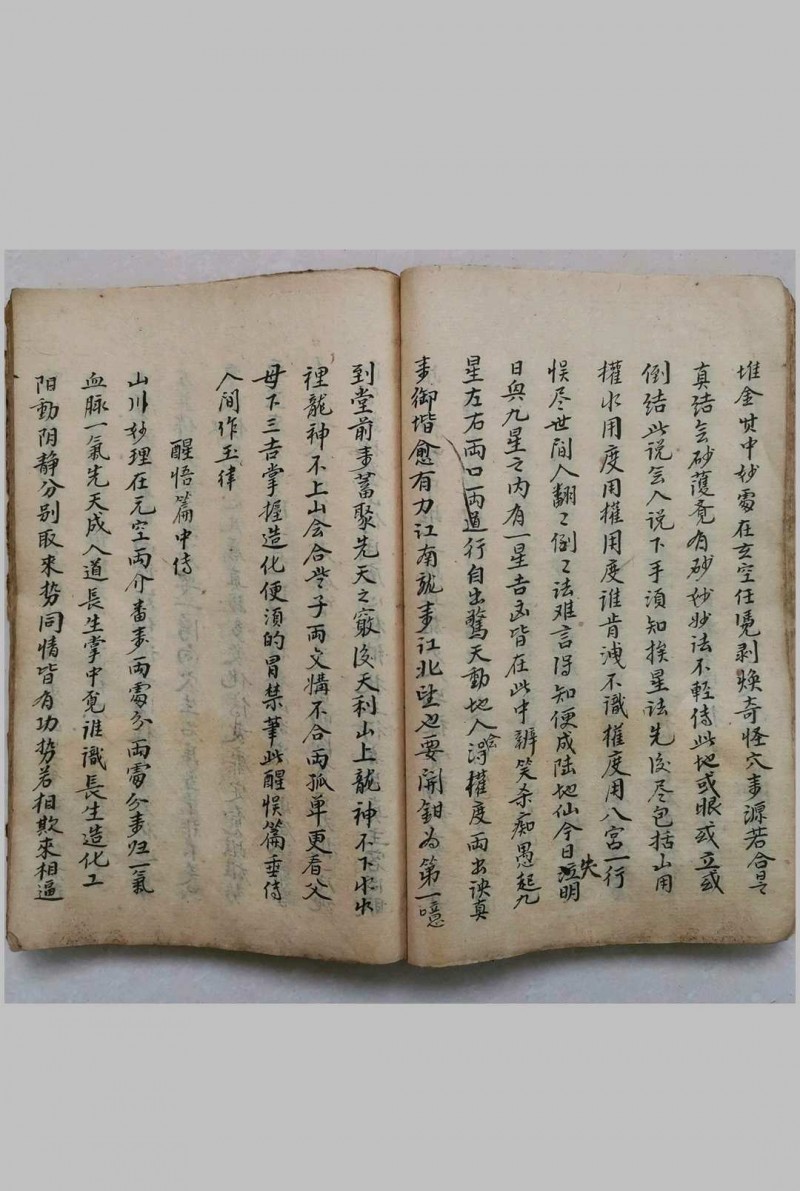 堆金世中妙處在玄空任憑剥煥奇怪穴来源若合是
真結会砂護竟有砂妙妙法不輕传此地或眠或立或
倒结此说会人说下手须知挨星法先后尽包括山用
權水用度用權用度谁肯洩不識權度用八宫一行
悮尽世间人翻々倒々法难言得知便成陆地仙今日泄失明
日與九星之内有一星吉凶皆在此中辨笑杀痴愚起九
星左右両口一両過行自出驚天動地人会得權度両出诀真
来御堦愈有力江南龍来江北望也要開鉗为第一噫
到堂前来蓄聚先天之竅后天利山上龍神不下水水
裡龍神不上山会合些子両交媾不合両孤单更看父
母下三吉掌握造化便须的冒禁筆此醒悮篇垂传
人间作玉律
醒悟篇中传
山川妙理在元空両介番来両處分両處分来归一氣
血脉一氣先天成入道長生掌中覓谁識長生造化工
阳動阴静分别取来势同情皆有功势若相欺來相逼